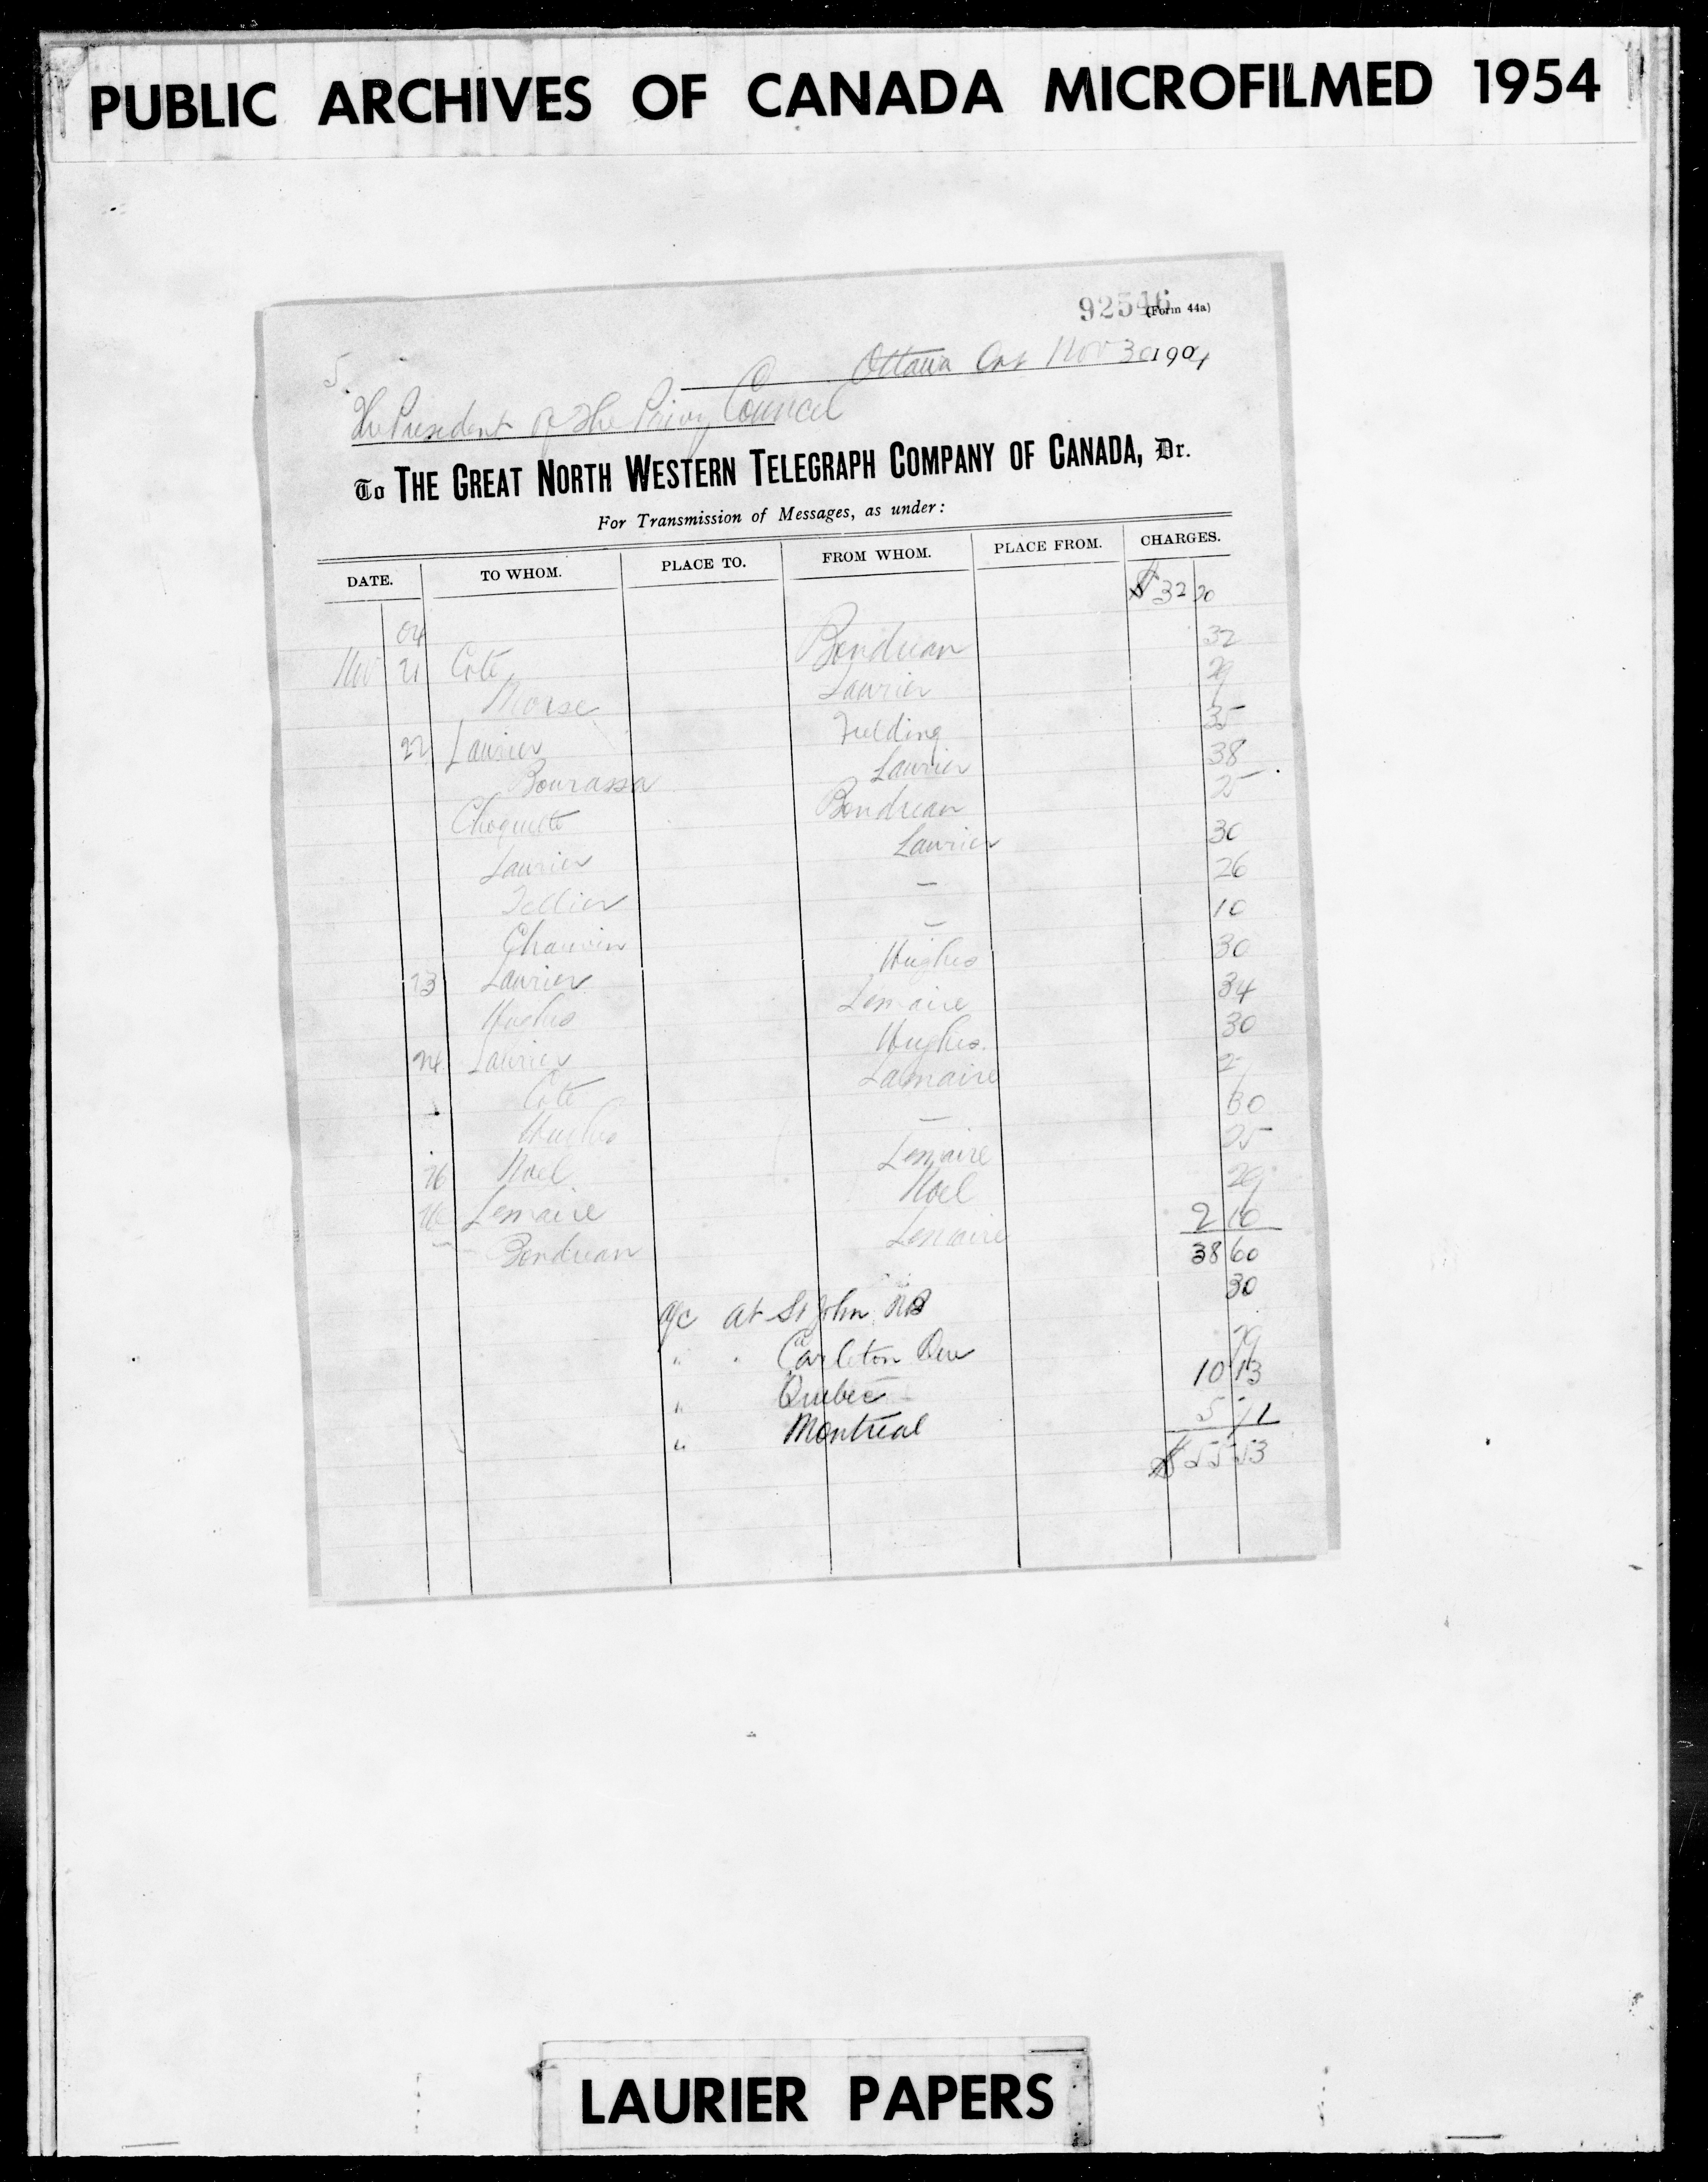 PUBLIC ARCHIVES OF CANADA MICROFILMED 1954
92546 (Form 44a)
5.
Ottawa Ont Nov 30 1904
The President of the Privy Council
To THE GREAT NORTH WESTERN TELEGRAPH COMPANY OF CANADA, Dr.
For Transmission of Messages, as under:
DATE. TO WHOM. PLACE TO. FROM WHOM. PLACE FROM. CHARGES.
$32 20
04
Nov 21 Cote Bondreau 32
Morse Laurier 29
22 Laurier Fielding 35
Bourassa Laurier 38
Choquette Bondreau 25
Laurier Laurier 30
Tellier — 26
Chauvin — 10
23 Laurier Hughes 30
Hughes Lemaire 34
24 Laurier Hughes. 30
Cote Lamaire
Hughes — 30
26 Noel Lemaire 25
Lemaire Noel 29
Bondreau Lemaire 2 10
38 60
a/c at St John NB 30
" " Carleton Que 79
" Quebec 10 13
" Montreal 5 71
$55 53
LAURIER PAPERS